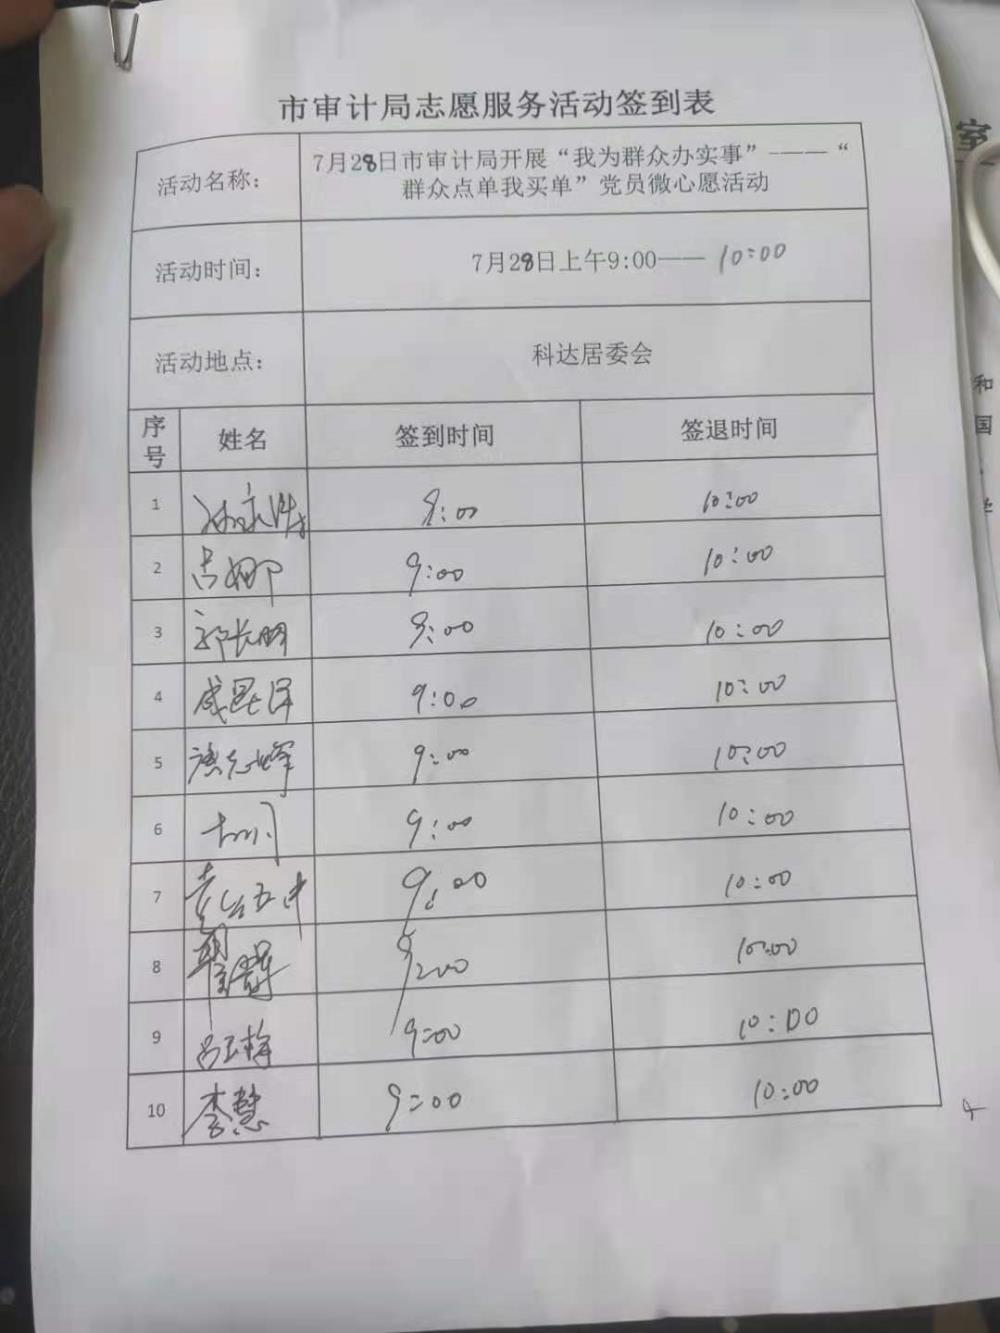 市审计局志愿服务活动签到表
活动名称：
7月28日市审计局开展“我为群众办实事”——“
群众点单我买单”党员微心愿活动
活动时间：
7月28日上午9:00——10:00
活动地点：
科达居委会
序号 姓名 签到时间 签退时间
1 9:00 10:00
2 吉娜 9:00 10:00
3 郭长明 9:00 10:00
4 9:00 10:00
5 9:00 10:00
6 9:00 10:00
7 9:00 10:00
8 9:00 10:00
9 吕玉梅 9:00 10:00
10 李慧 9:00 10:00
室
和
国